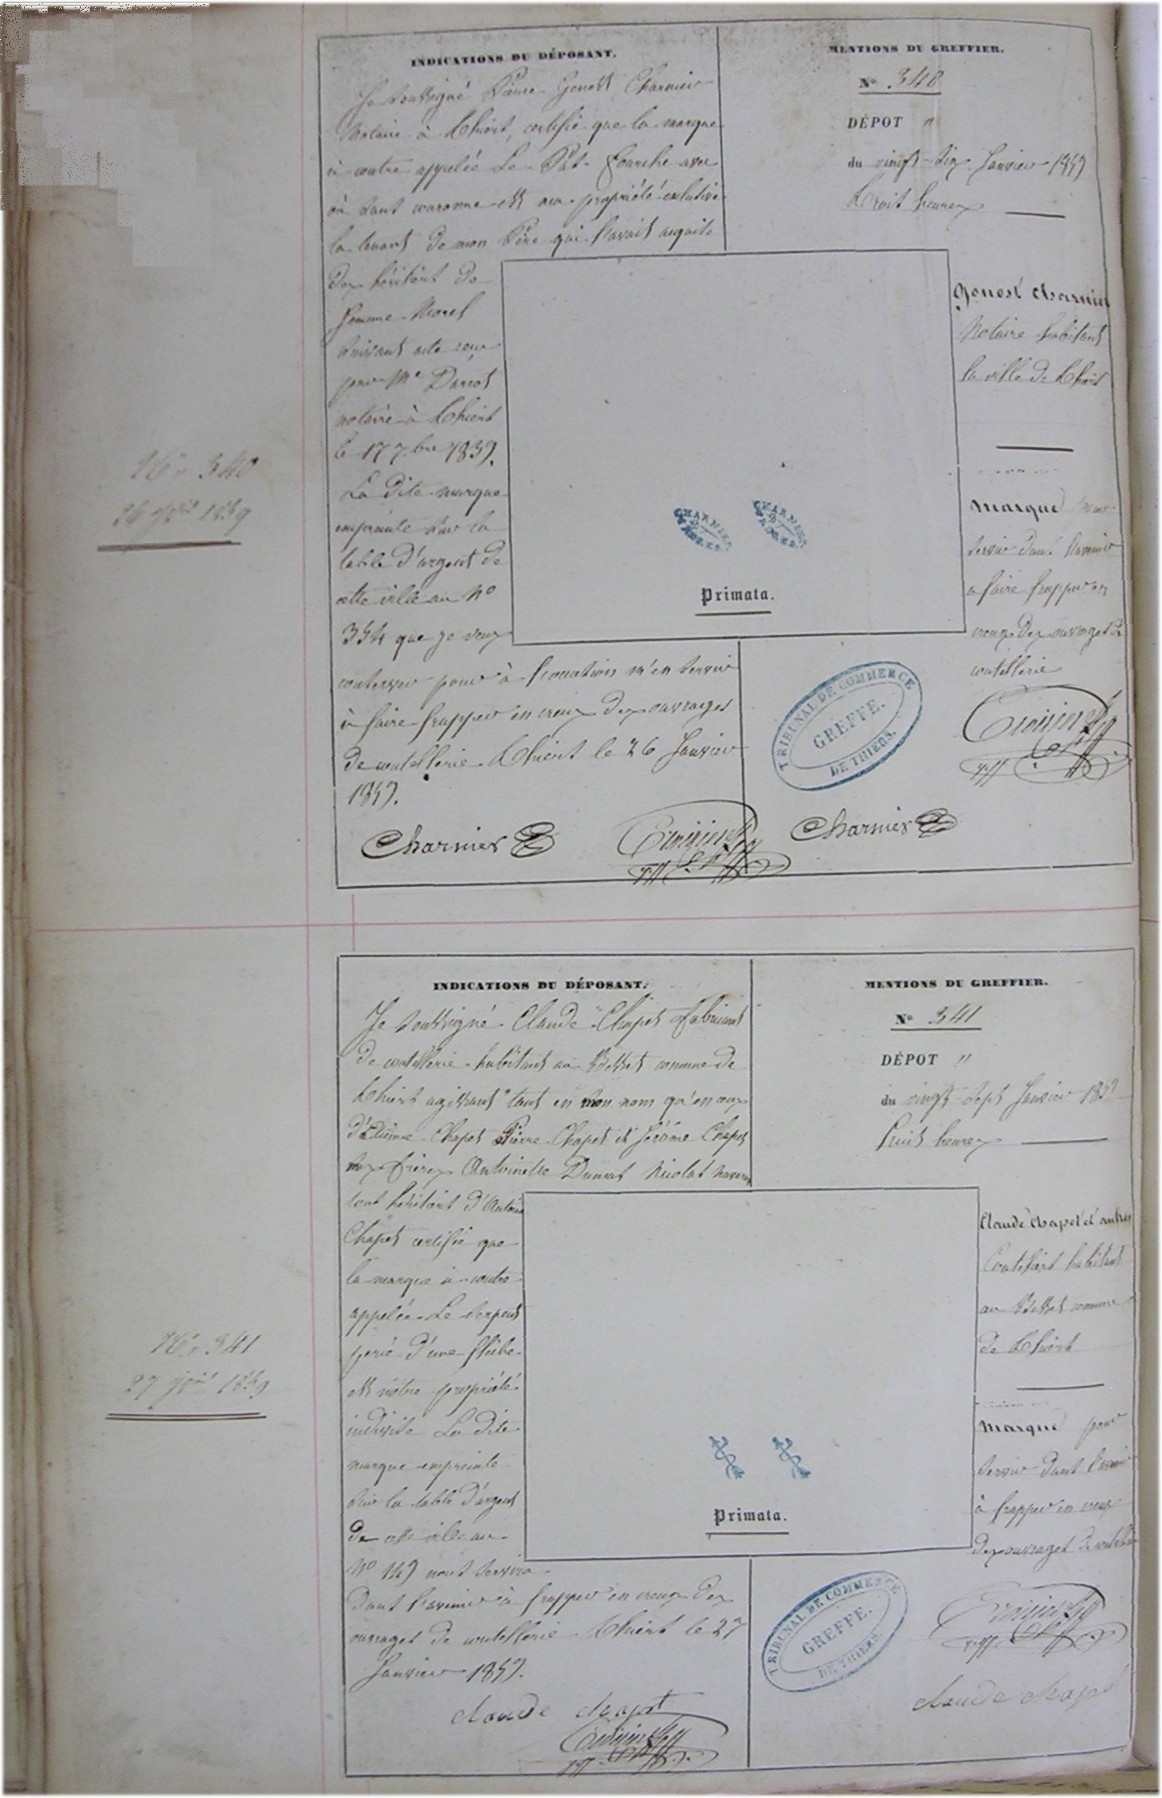 INDICATIONS DU DÉPOSANT.
Je soussigné Pierre Genest Charnier
Notaire à Thiers, certifie que la marque
ci contre appelée Le Pât Fourche avec
où dant couronne est ma propriété exclusive
la tenant de mon Père qui l'avait acquise
des héritiers de
femme Morel
suivant acte reçu
par Me Darrot
notaire à Thiers
le 17 7bre 1839.
La dite marque
empreinte sur la
table d'argent de
cette ville au No
354 que je veux
conserver pour à l'occation m'en servir
à faire frapper en creux des ouvrages
de coutellerie Thiers le 26 Janvier
1859.
Charnier
MENTIONS DU GREFFIER.
No 340
DÉPOT "
du vingt six Janvier 1859
heures
Genest Charnier
Notaire habitant
la ville de Thiers
Marque pour
servir dans l'avenir
a faire frapper en
creux des ouvrages de
coutellerie
CHARNIER
CHARNIER
Primata.
TRIBUNAL DE COMMERCE
GREFFE.
DE THIERS.
Charnier
No 340
26 jvier 1859
INDICATIONS DU DÉPOSANT.
Je soussigné Claude Chapet fabricant
de coutellerie habitant au commune de
Thiers agissant tant en mon nom qu'en ceux
d'Etienne Chapet Pierre Chapet et Jérôme Chapet
mes frères Antoinette Dumas Nicolas
tous héritiers d'Antoine
Chapet certifie que
la marque ci contre
appelée Le Serpent
percé d'une flèche
est notre propriété
indivise La dite
marque empreinte
sur la table d'argent
de cette ville au
No 149 nous servira
dans l'avenir à frapper en creux des
ouvrages de coutellerie Thiers le 27
Janvier 1859.
claude chapet
MENTIONS DU GREFFIER.
No 341
DÉPOT "
du vingt sept Janvier 1859
huit heures
Claude Chapet et autres
Couteliers habitant
au commune
de Thiers
Marque pour
servir dans l'avenir
à frapper en creux
des ouvrages de coutellerie
Primata.
TRIBUNAL DE COMMERCE
GREFFE.
DE THIERS.
claude chapet
No 341
27 jvier 1859